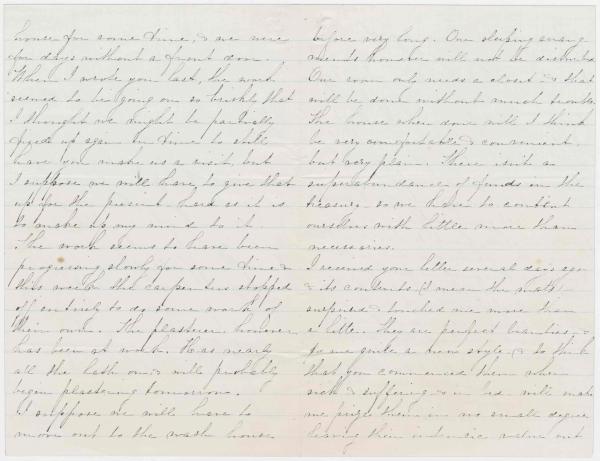 house for some time, & we were
for days without a front door.
When I wrote you last, the work
seemed to be going on so briskly that
I thought we might be partially
fixed up again in time to still
have you make us a visit, but
I suppose we will have to give that
up for the present, hard as it is
to make up my mind to it.
The work seems to have been
progressing slowly for some time &
this week the carpenters stopped
off entirely to do some work of
their own. The plasterer however
has been at work. Has nearly
all the lath on & will probably
begin plastering tomorrow.
I suppose we will have to
move out to the wash house
before very long. Our sleeping arrange
ments however will not be disturbed
One room only needs a closet & that
will be done without much trouble.
The house when done will I think
be very comfortable & convenient,
but very plain. There isn't a
superabundance of funds in the
treasury so we have to content
ourselves with little more than
necessaries.
I received your letter several days ago
& its contents (I mean the mats)
surprised & touched me more than
a little. They are perfect beauties, &
to me quite a new style, & to think
that you commenced them when
sick & suffering & in bed will make
me prize them in no small degree
leaving their intrinsic value out